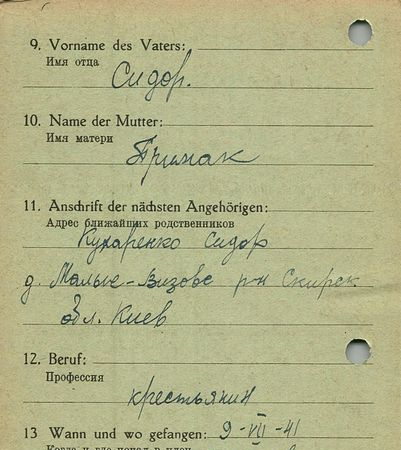 9. Vorname des Vaters:
Имя отца
Сидор.
10. Name der Mutter:
Имя матери
Примак
11. Anschrift der nächsten Angehörigen:
Адрес ближайших родственников
Кухаренко Сидор
д. Малые- р-н Скирек
обл. Киев
12. Beruf:
Профессия
крестьянин
13 Wann und wo gefangen: 9-VII-41